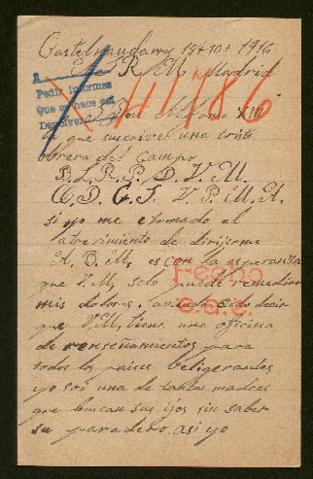 Castelnaudary 13+10+1916
S. R. M. Madrid
A
Pedir informes
Que se hace así
Devolver
41186
Don Alfonso XIII
La que suscrive una triste
obrera del Campo
B. L. R. P. D. V. M.
Q. D. G. V. P. M. A.
si yo me e tomado el
atrevimiento de dirijirme
A. V. M, es con la esperanza
que V. M, solo puede remediar
mis dolores, aviendo oido decir
que V. M, tiene una oficina
de renseñamientos para
todos los paises beligerantes
yo soi una de tanta madres
que buscan sus ijos sin saber
su paradero, asi yo
Fecho
e.a.e.